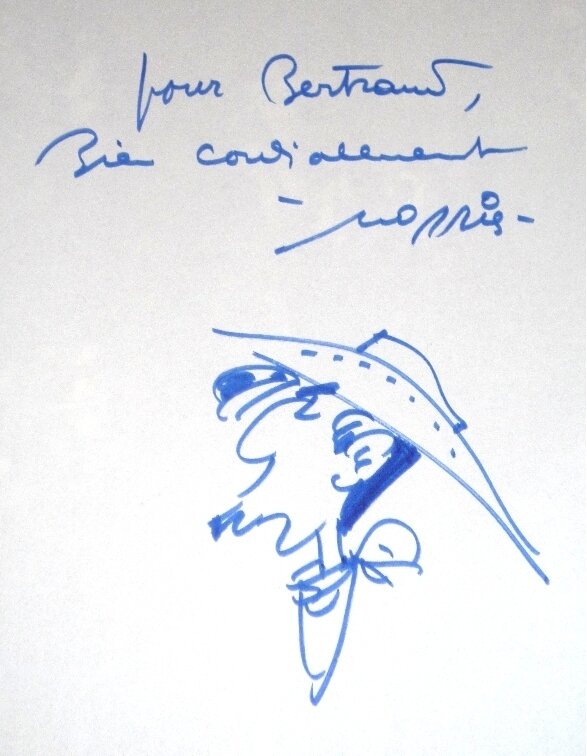 pour Bertrand,
Bien cordialement
- morris -